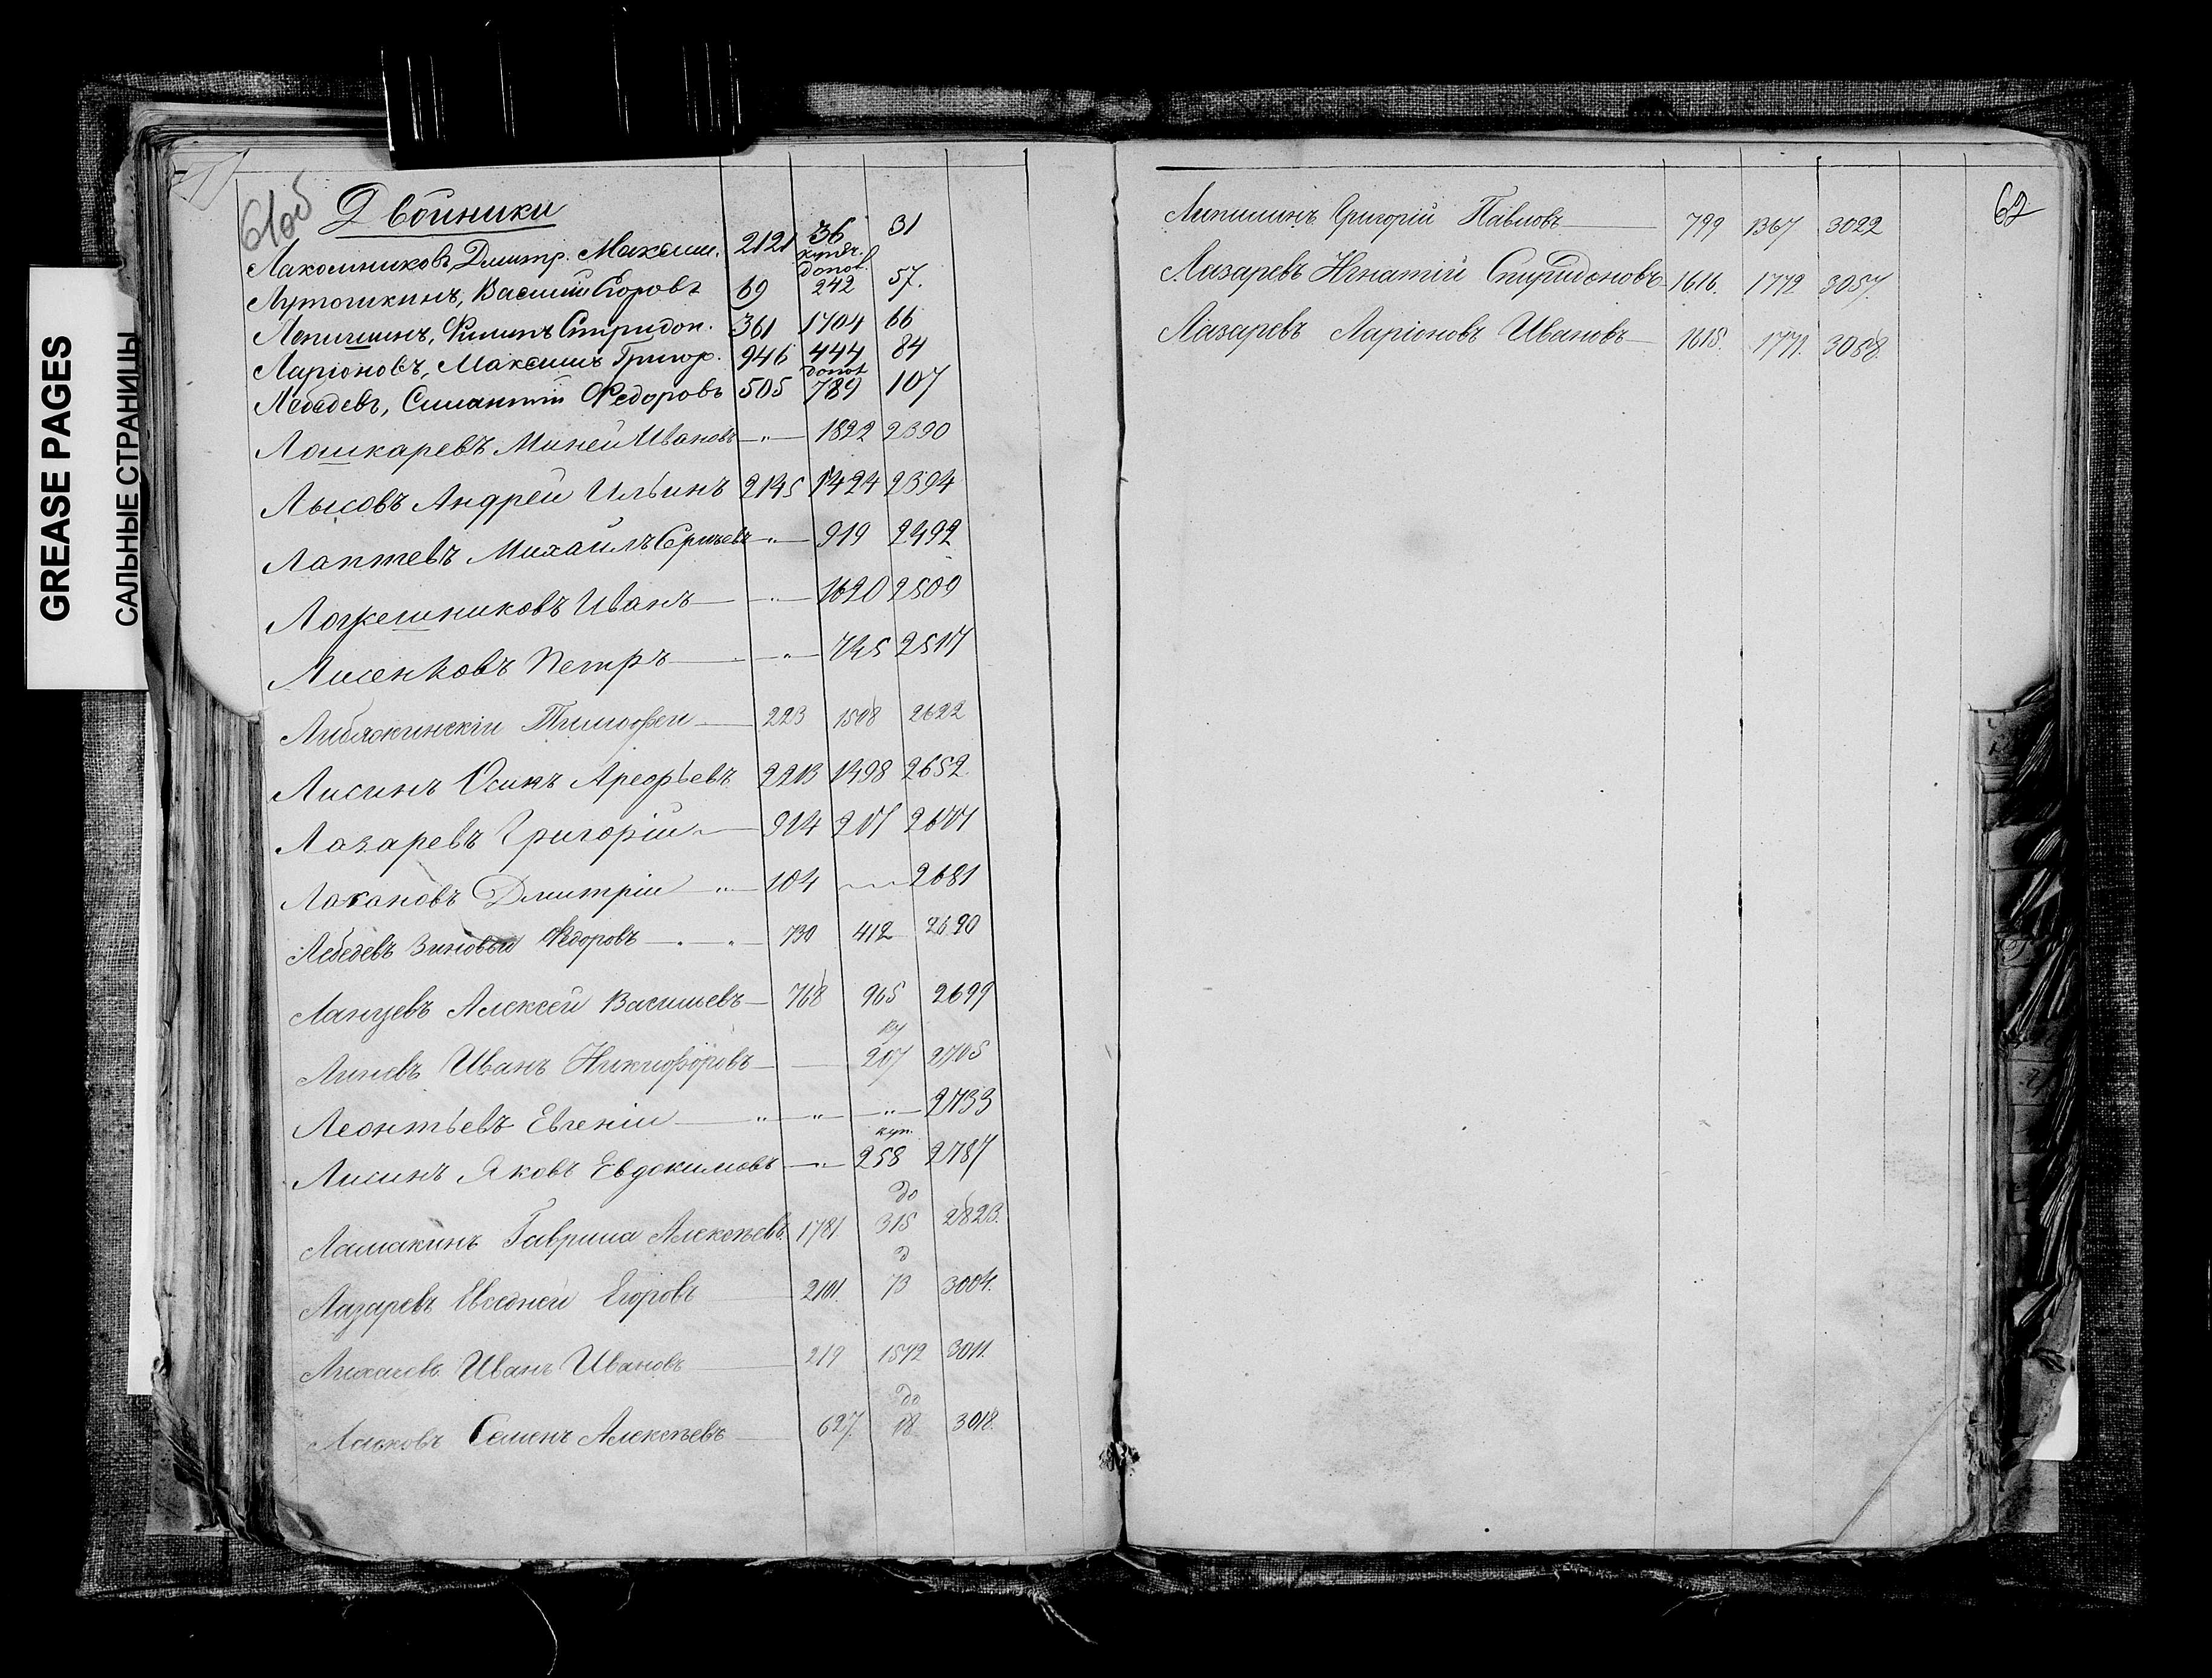 GREASE PAGES
САЛЬНЫЕ СТРАНИЦЫ
61об
Двойники
Лакомниковъ, Дмитр. Максим. 2121 36 31
купеч.
допол.
Лутошкинъ, Василій Егоровъ 69 242 57.
Лепишинъ, Филипъ Спридон. 361 1704 66
Ларіоновъ, Максимъ Григор. 946 444 84
допол
Лебедевъ, Силантій Федоровъ 505 789 107
Лошкаревъ Миней Ивановъ —"— 1822 2390
Лысовъ Андрей Ильинъ 2145 1424 2394
Лаптевъ Михаилъ Сергѣевъ —"— 919 2492
Ложешниковъ Иванъ — —"— 1620 2509
Лисенковъ Петръ — —"— 745 2517
Тимофей — 223 1508 2622
Лисинъ Осипъ Арефьевъ 2213 1498 2652.
Лазаревъ Григорій — 914 217 2671
Лакановъ Дмитрій —"— 104 — 2681
Лебедевъ Зиновій Федоровъ —"—"— 730 412 2690
Ланцевъ Алексей Васильевъ — 768 965 2699
ку
Линевъ Иванъ Никифоровъ — — 207 2705
Леонтьевъ Евгеніи — "—"— —"— 2733
куп.
Лисинъ Яковъ Евдокимовъ —"— 258 2787
до
Ламакинъ Гаврила Алексѣевъ 1781 315 2823.
д
Лазаревъ Евсегней Егоровъ 2101. 73 3004.
Лихачевъ Иванъ Ивановъ — 219 1572 3011.
до
Лысковъ Семенъ Алексѣевъ — 627. 18 3018.
62
Липишинъ Григорій Павловъ — 799 1367 3022
Лазаревъ Игнатій Спиридоновъ 1616. 1772 3057.
Лазаревъ Ларіоновъ Ивановъ — 1615. 1771. 3058.